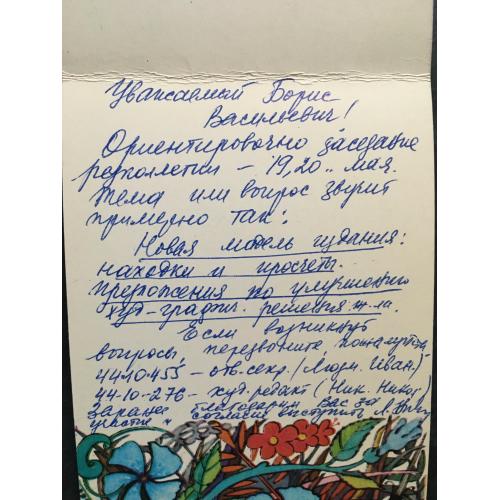 Уважаемый Борис
Васильевич!
Ориентировочно заседание
редколлегии – 19, 20.. мая.
Тема или вопрос звучит
примерно так:
Новая модель издания:
находки и просчеты.
Предложения по улучшению
худ-графич. решения ж-ла.
Если возникнут
вопросы, перезвоните пожалуйста,
44-10-455 – отв. секр. (Людм. Иван.)
44-10-276 – худ. редакт (Ник. Никол)
Заранее благодарим Вас за
участие и согласие выступить